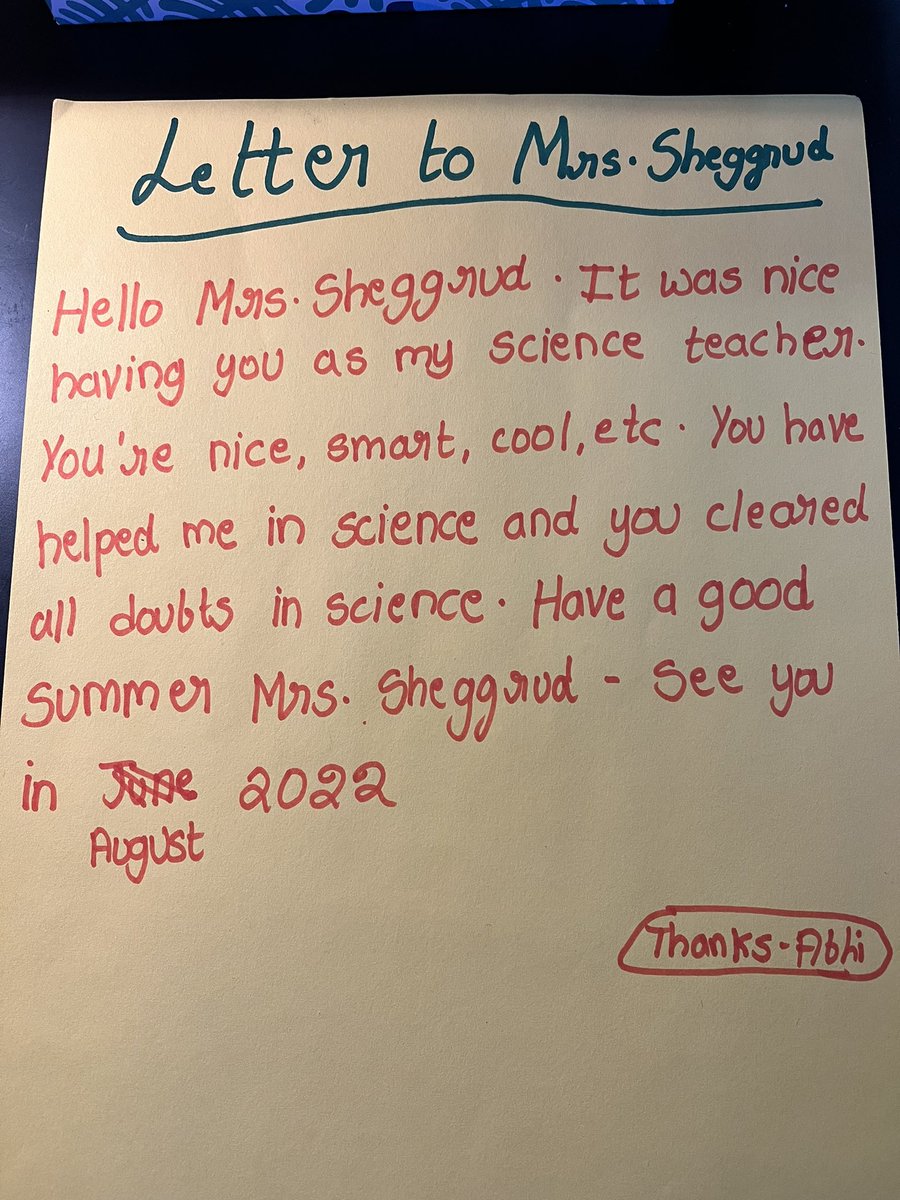 Letter to Mrs. Sheggrud
Hello Mrs. Sheggrud. It was nice
having you as my science teacher.
You're nice, smart, cool, etc. You have
helped me in science and you cleared
all doubts in science. Have a good
summer Mrs. Sheggrud - See you
in June 2022
August
Thanks-Abhi